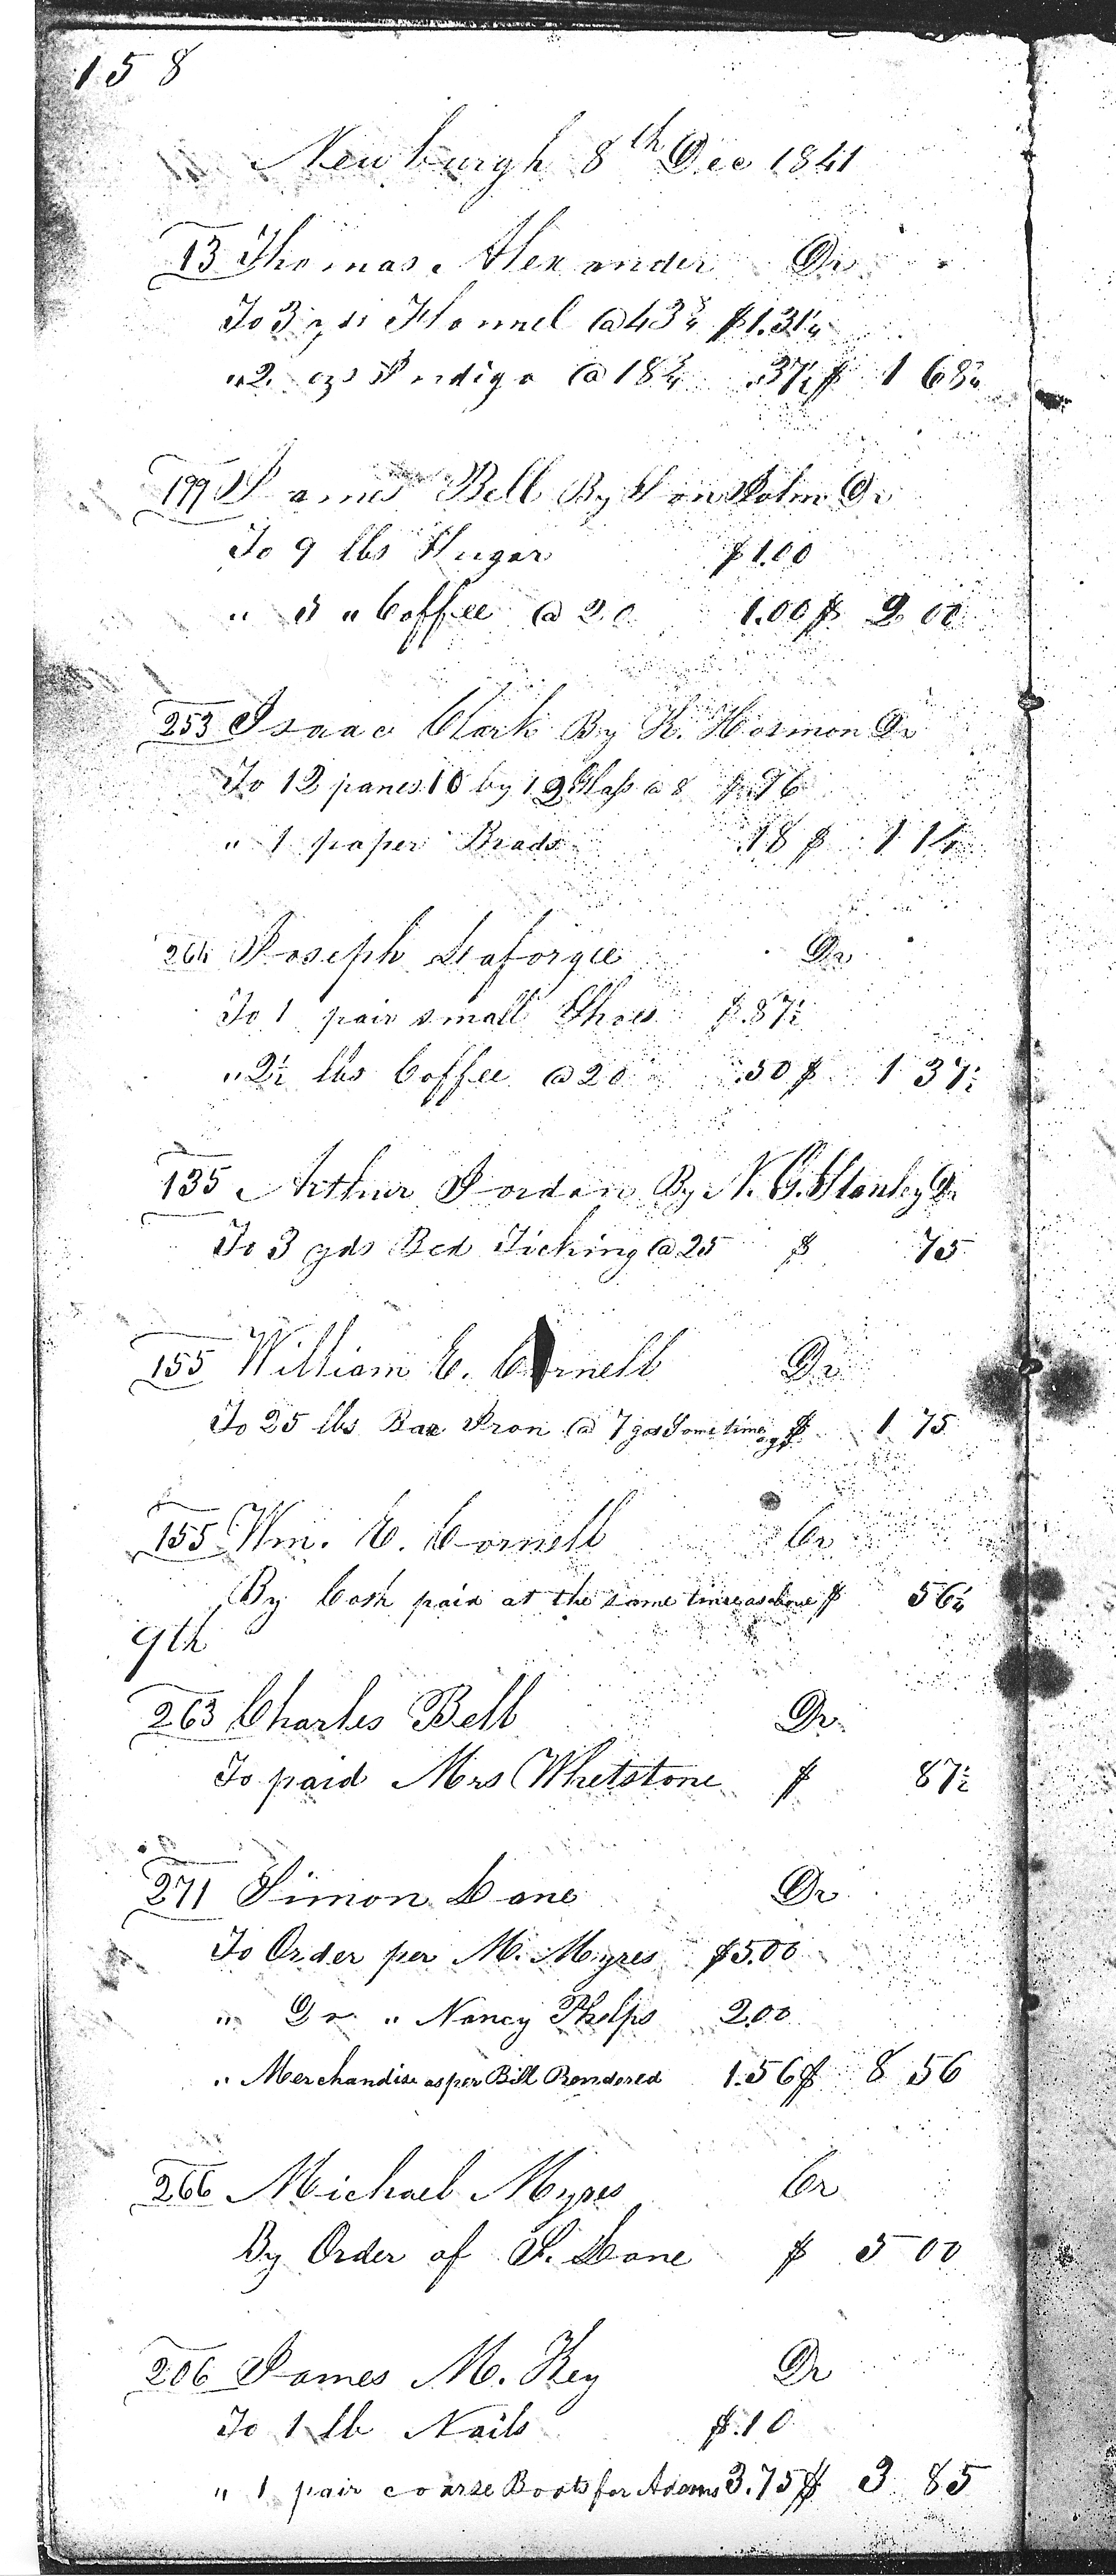 158
Newburgh 8th Dec 1841
13 Thomas Alexander Dr
To 3 yds Flannel @ 43¾ $1.31¼
" 2 ozs Indigo @ 18¾ .37½ $ 1 68¾
199 James Bell By Son John Dr
To 9 lbs Sugar $1.00
" 5 " Coffee @ 20 1.00 $ 2 00
253 Isaac Clark By K. Hormon Dr
To 12 panes 10 by 12 Glass @ 8 $.96
" 1 paper Brads .18 $ 1 14
264 Joseph Laforgee Dr
To 1 pair small Shoes $.87½
" 2½ lbs Coffee @ 20 .50 $ 1 37½
135 Arthur Jordan By N. G. Stanley Dr
To 3 yds Bed Ticking @ 25 $ 75
155 William E. Cornell Dr
To 25 lbs Bar Iron @ 7 got Sometime ago $ 1 75
155 Wm. E. Cornell Cr
By Cash paid at the same time as above $ 56¼
9th
263 Charles Bell Dr
To paid Mrs Whetstone $ 87½
271 Simon Lane Dr
To Order per M. Myres $5.00
" Do " Nancy Phelps 2.00
" Merchandise as per Bill Rendered 1.56 $ 8 56
266 Michael Myres Cr
By Order of S. Lane $ 5 00
206 James M. Key Dr
To 1 lb Nails $.10
" 1 pair coarse Boots for Adams 3.75 $ 3 85